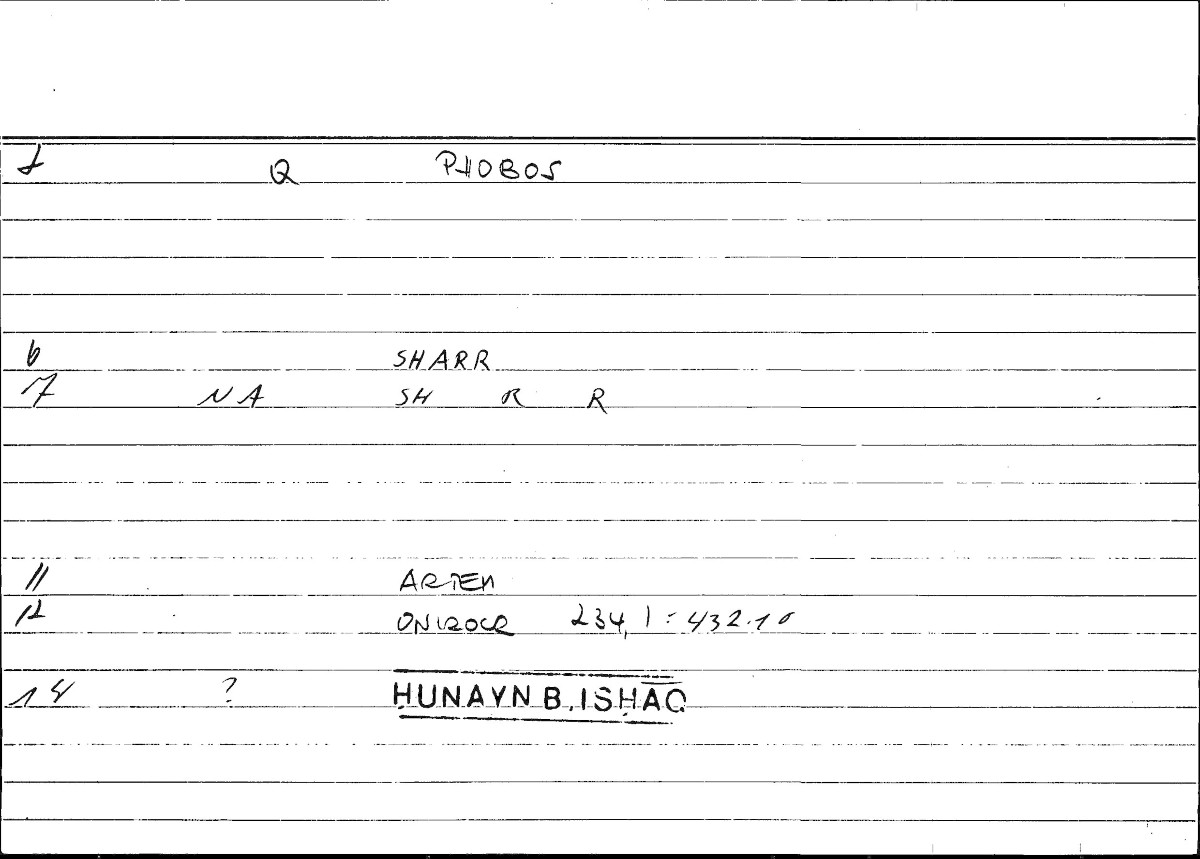 1 Q PHOBOS
6 SHARR
7 NA SH R R
11 ARTEM
12 ONIROCR 234,1 = 432.10
14 ? ḤUNAYN B. ISḤĀQ